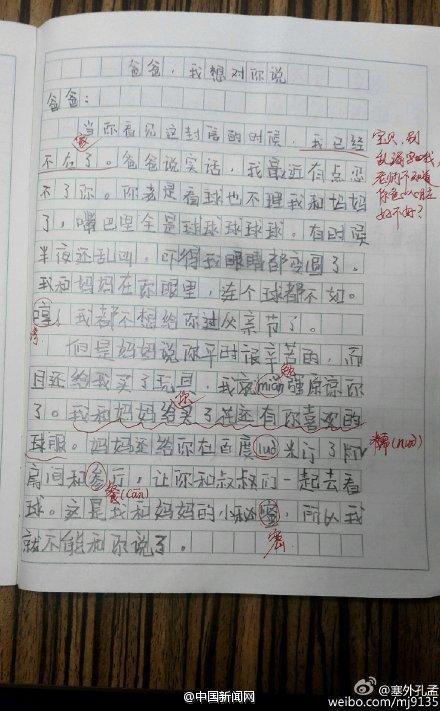 爸爸，我想对你说
爸爸：
当你看见这封信的时候，我已经
不在了。爸爸说笑话，我最近有点忍
不了你。你老是看球也不理我和妈妈
了，嘴巴里全是球球球球球。有时候
半夜还乱叫，吓得我眼睛都变圆了。
我和妈妈在你眼里，连个球都不如。
哼！我都不想给你过父亲节了。
但是妈妈说你平时很辛苦的，而
且还给我买了玩具，我就mian强原谅你
了。我和妈妈给买了花还有你喜欢的
球服。妈妈还给你在百度luo米订了
房间和参厅，让你和叔叔们一起去看
球。这是我和妈妈的小秘蜜，所以我
就不能和你说了。
家
宝贝，别
老师不知道
好不好？
勉
你
糯(nuo)
餐(can)
密
@中国新闻网
@塞外孔孟
weibo.com/mj9135